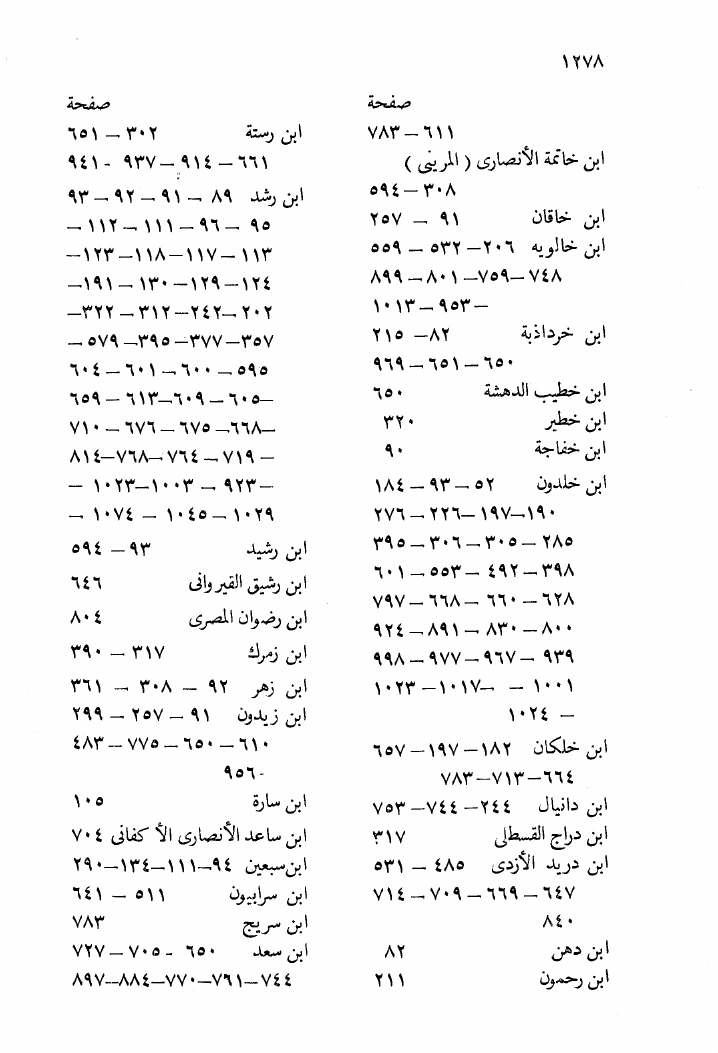 ١٢٧٨
صفحة
٦١١ – ٧٨٣
ابن خاتمة الأنصارى ( المرينى )
٣٠٨ – ٥٩٤
ابن خاقان ٩١ – ٢٥٧
ابن خالويه ٢٠٦ – ٥٣٢ – ٥٥٩
٧٤٨ – ٧٥٩ – ٨٠١ – ٨٩٩
– ٩٥٣ – ١٠١٣
ابن خرداذبة ٨٢ – ٢١٥
٦٥٠ – ٦٥١ – ٩٦٩
ابن خطيب الدهشة ٦٥٠
ابن خطير ٣٢٠
ابن خفاجة ٩٠
ابن خلدون ٥٢ – ٩٣ – ١٨٤
١٩٠ – ١٩٧ – ٢٢٦ – ٢٧٦
٢٨٥ – ٣٠٥ – ٣٠٦ – ٣٩٥
٣٩٨ – ٤٩٢ – ٥٥٣ – ٦٠١
٦٢٨ – ٦٦٠ – ٦٦٨ – ٧٩٧
٨٠٠ – ٨٣٠ – ٨٩١ – ٩٢٤
٩٣٩ – ٩٦٧ – ٩٧٧ – ٩٩٨
١٠٠١ – – ١٠١٧ – ١٠٢٣
– ١٠٢٤
ابن خلكان ١٨٢ – ١٩٧ – ٦٥٧
٦٦٤ – ٧١٣ – ٧٨٣
ابن دانيال ٢٤٤ – ٧٤٤ – ٧٥٣
ابن دراج القسطلى ٣١٧
ابن دريد الأزدى ٤٨٥ – ٥٣١
٦٤٧ – ٦٦٩ – ٧٠٩ – ٧١٤
٨٤٠
ابن دهن ٨٢
ابن رحمون ٢١١
صفحة
ابن رستة ٣٠٢ – ٦٥١
٦٦١ – ٩١٤ – ٩٣٧ - ٩٤١
ابن رشد ٨٩ – ٩١ – ٩٢ – ٩٣
٩٥ – ٩٦ – ١١١ – ١١٢ –
١١٣ – ١١٧ – ١١٨ – ١٢٣ –
١٢٤ – ١٢٩ – ١٣٠ – ١٩١ –
٢٠٢ – ٢٤٢ – ٣١٢ – ٣٢٢ –
٣٥٧ – ٣٧٧ – ٣٩٥ – ٥٧٩ –
٥٩٥ – ٦٠٠ – ٦٠١ – ٦٠٤
– ٦٠٥ – ٦٠٩ – ٦١٣ – ٦٥٩
– ٦٦٨ – ٦٧٥ – ٦٧٦ – ٧١٠
– ٧١٩ – ٧٦٤ – ٧٦٨ – ٨١٤
– ٩٢٣ – ١٠٠٣ – ١٠٢٣ –
١٠٢٩ – ١٠٤٥ – ١٠٧٤ –
ابن رشيد ٩٣ – ٥٩٤
ابن رشيق القيروانى ٦٤٦
ابن رضوان المصرى ٨٠٤
ابن زمرك ٣١٧ – ٣٩٠
ابن زهر ٩٢ – ٣٠٨ – ٣٦١
ابن زيدون ٩١ – ٢٥٧ – ٢٩٩
٦١٠ – ٦٥٠ – ٧٧٥ – ٤٨٣
- ٩٥٦
ابن سارة ١٠٥
ابن ساعد الأنصارى الأكفانى ٧٠٤
ابن سبعين ٩٤ – ١١١ – ١٣٤ – ٢٩٠
ابن سرابيون ٥١١ – ٦٤١
ابن سريج ٧٨٣
ابن سعد ٦٥٠ - ٧٠٥ – ٧٢٧
٧٤٤ – ٧٦١ – ٧٧٠ – ٨٨٤ – ٨٩٧